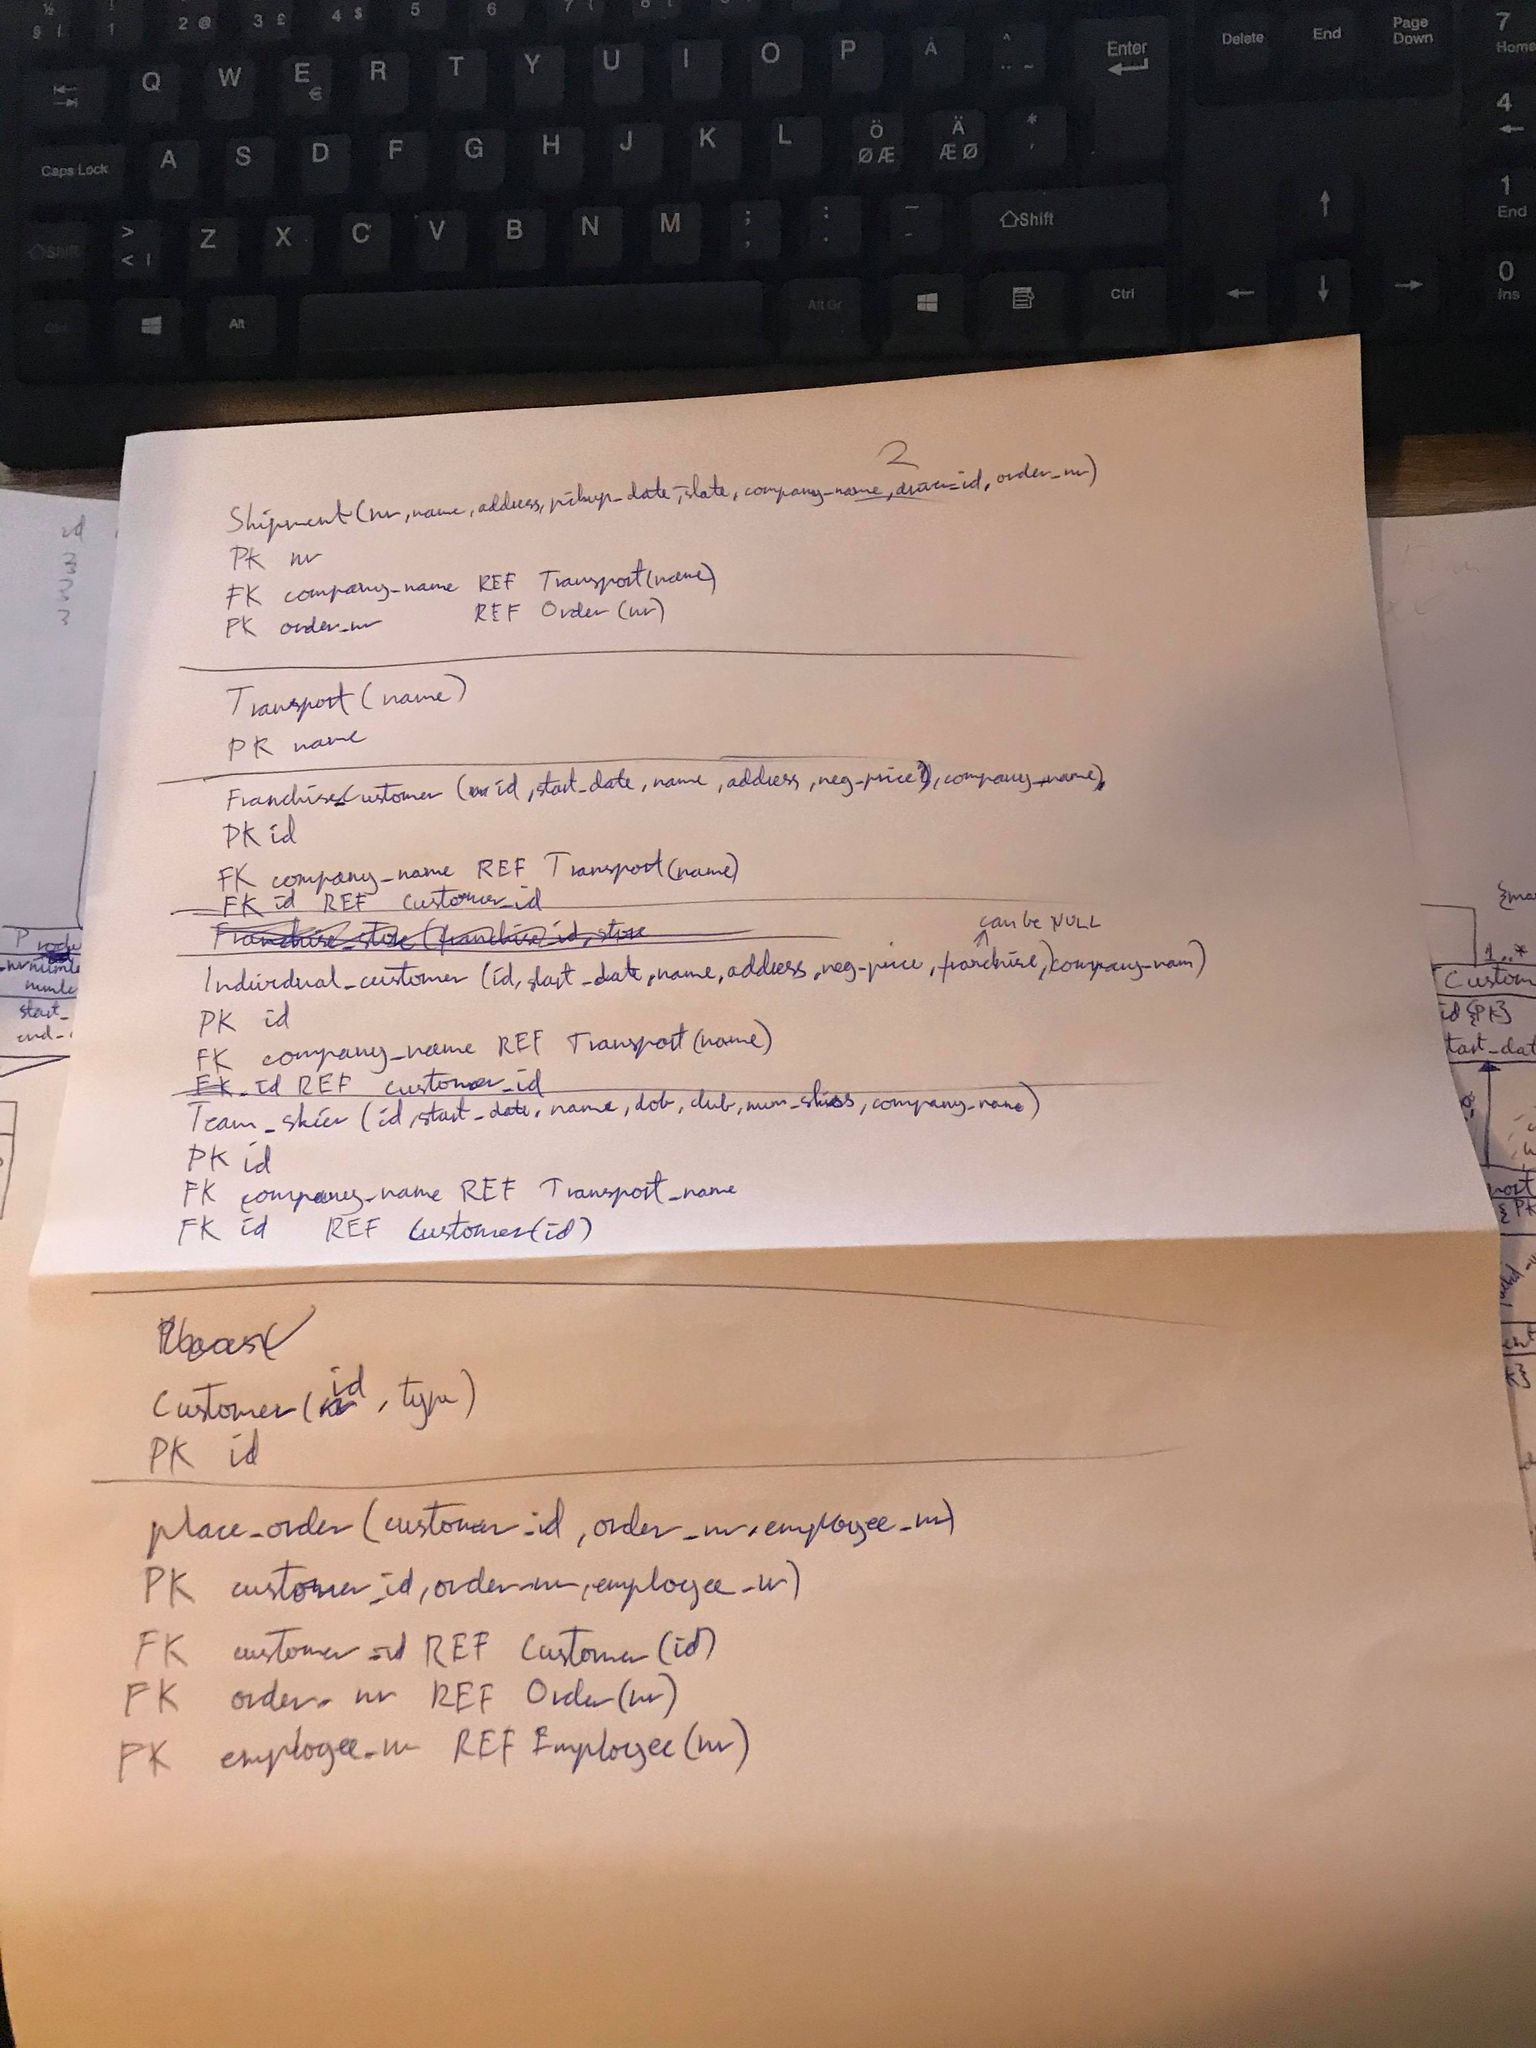 ½ 1 2 @ 3 £ 4 $ 5 6
§ | !
Q W E R T Y U I O P Å ^ Enter Delete End Page Down 7 Home
€ ¨ ~
Caps Lock A S D F G H J K L Ö Ä * 4
Ø Æ Æ Ø '
Shift > Z X C V B N M ; : _ Shift 1 End
< | , . -
Ctrl Alt Alt Gr Ctrl 0 Ins
2
Shipment(nr, name, address, pickup_date, state, company_name, driver_id, order_nr)
PK nr
FK company_name REF Transport(name)
FK order_nr REF Order(nr)
Transport(name)
PK name
Franchise_Customer (id, start_date, name, address, neg-price, company_name)
PK id
FK company_name REF Transport(name)
FK id REF Customer_id
Franchise_store (franchise_id, store
can be NULL
Individual_customer (id, start_date, name, address, neg-price, franchise, company-nam)
PK id
FK company_name REF Transport(name)
FK id REF customer_id
Team_skier (id, start_date, name, dob, club, num_skis, company_name)
PK id
FK company_name REF Transport_name
FK id REF Customer(id)
Customer(id, type)
PK id
place_order(customer_id, order_nr, employee_nr)
PK customer_id, order_nr, employee_nr)
FK customer_id REF Customer(id)
FK order_nr REF Order(nr)
FK employee_nr REF Employee(nr)
id
3
3
3
start_
1..*
Custom
id {PK}
tart_dat